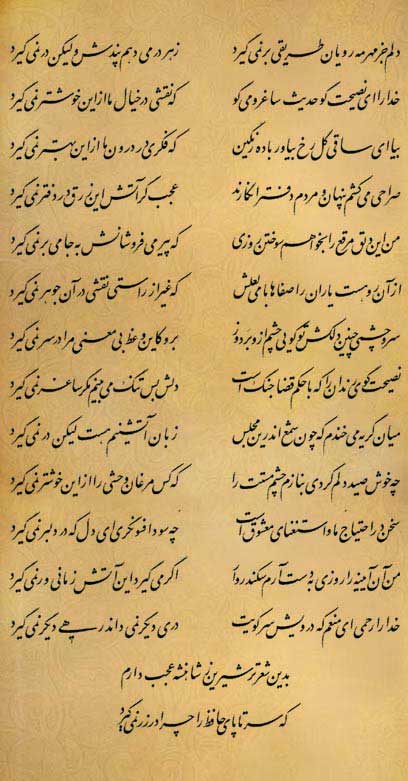 دلم جز مهر مه رویان طریقی بر نمی‌گیرد ز هر در می دهم پندش ولیکن در نمی‌گیرد
خدا را ای نصیحت گو حدیث ساغر و می گو که نقشی در خیال ما از این خوشتر نمی‌گیرد
بیا ای ساقی گل رخ بیاور باده رنگین که فکری در درون ما از این بهتر نمی‌گیرد
صراحی می کشم پنهان و مردم دفتر انگارند عجب گر آتش این زرق در دفتر نمی‌گیرد
من این دلق مرقع را بخواهم سوختن روزی که پیر می فروشانش به جامی بر نمی‌گیرد
از آن رو هست یاران را صفاها با می لعلش که غیر از راستی نقشی در آن جوهر نمی‌گیرد
سر و چشمی چنین دلکش تو گویی چشم از او بردوز برو کاین وعظ بی معنی مرا در سر نمی‌گیرد
نصیحت گوی رندان را که با حکم قضا جنگ است دلش بس تنگ می بینم مگر ساغر نمی‌گیرد
میان گریه می خندم که چون شمع اندرین مجلس زبان آتشینم هست لیکن در نمی‌گیرد
چه خوش صید دلم کردی بنازم چشم مستت را که کس مرغان وحشی را از این خوشتر نمی‌گیرد
سخن در احتیاج ما و استغنای معشوق است چه سود افسونگری ای دل که در دلبر نمی‌گیرد
من آن آیینه را روزی به دست آرم سکندروار اگر می گیرد این آتش زمانی ور نمی‌گیرد
خدا را رحمی ای منعم که درویش سر کویت دری دیگر نمی داند رهی دیگر نمی‌گیرد
بدین شعر تر شیرین ز شاهنشه عجب دارم
که سر تا پای حافظ را چرا در زر نمی‌گیرد